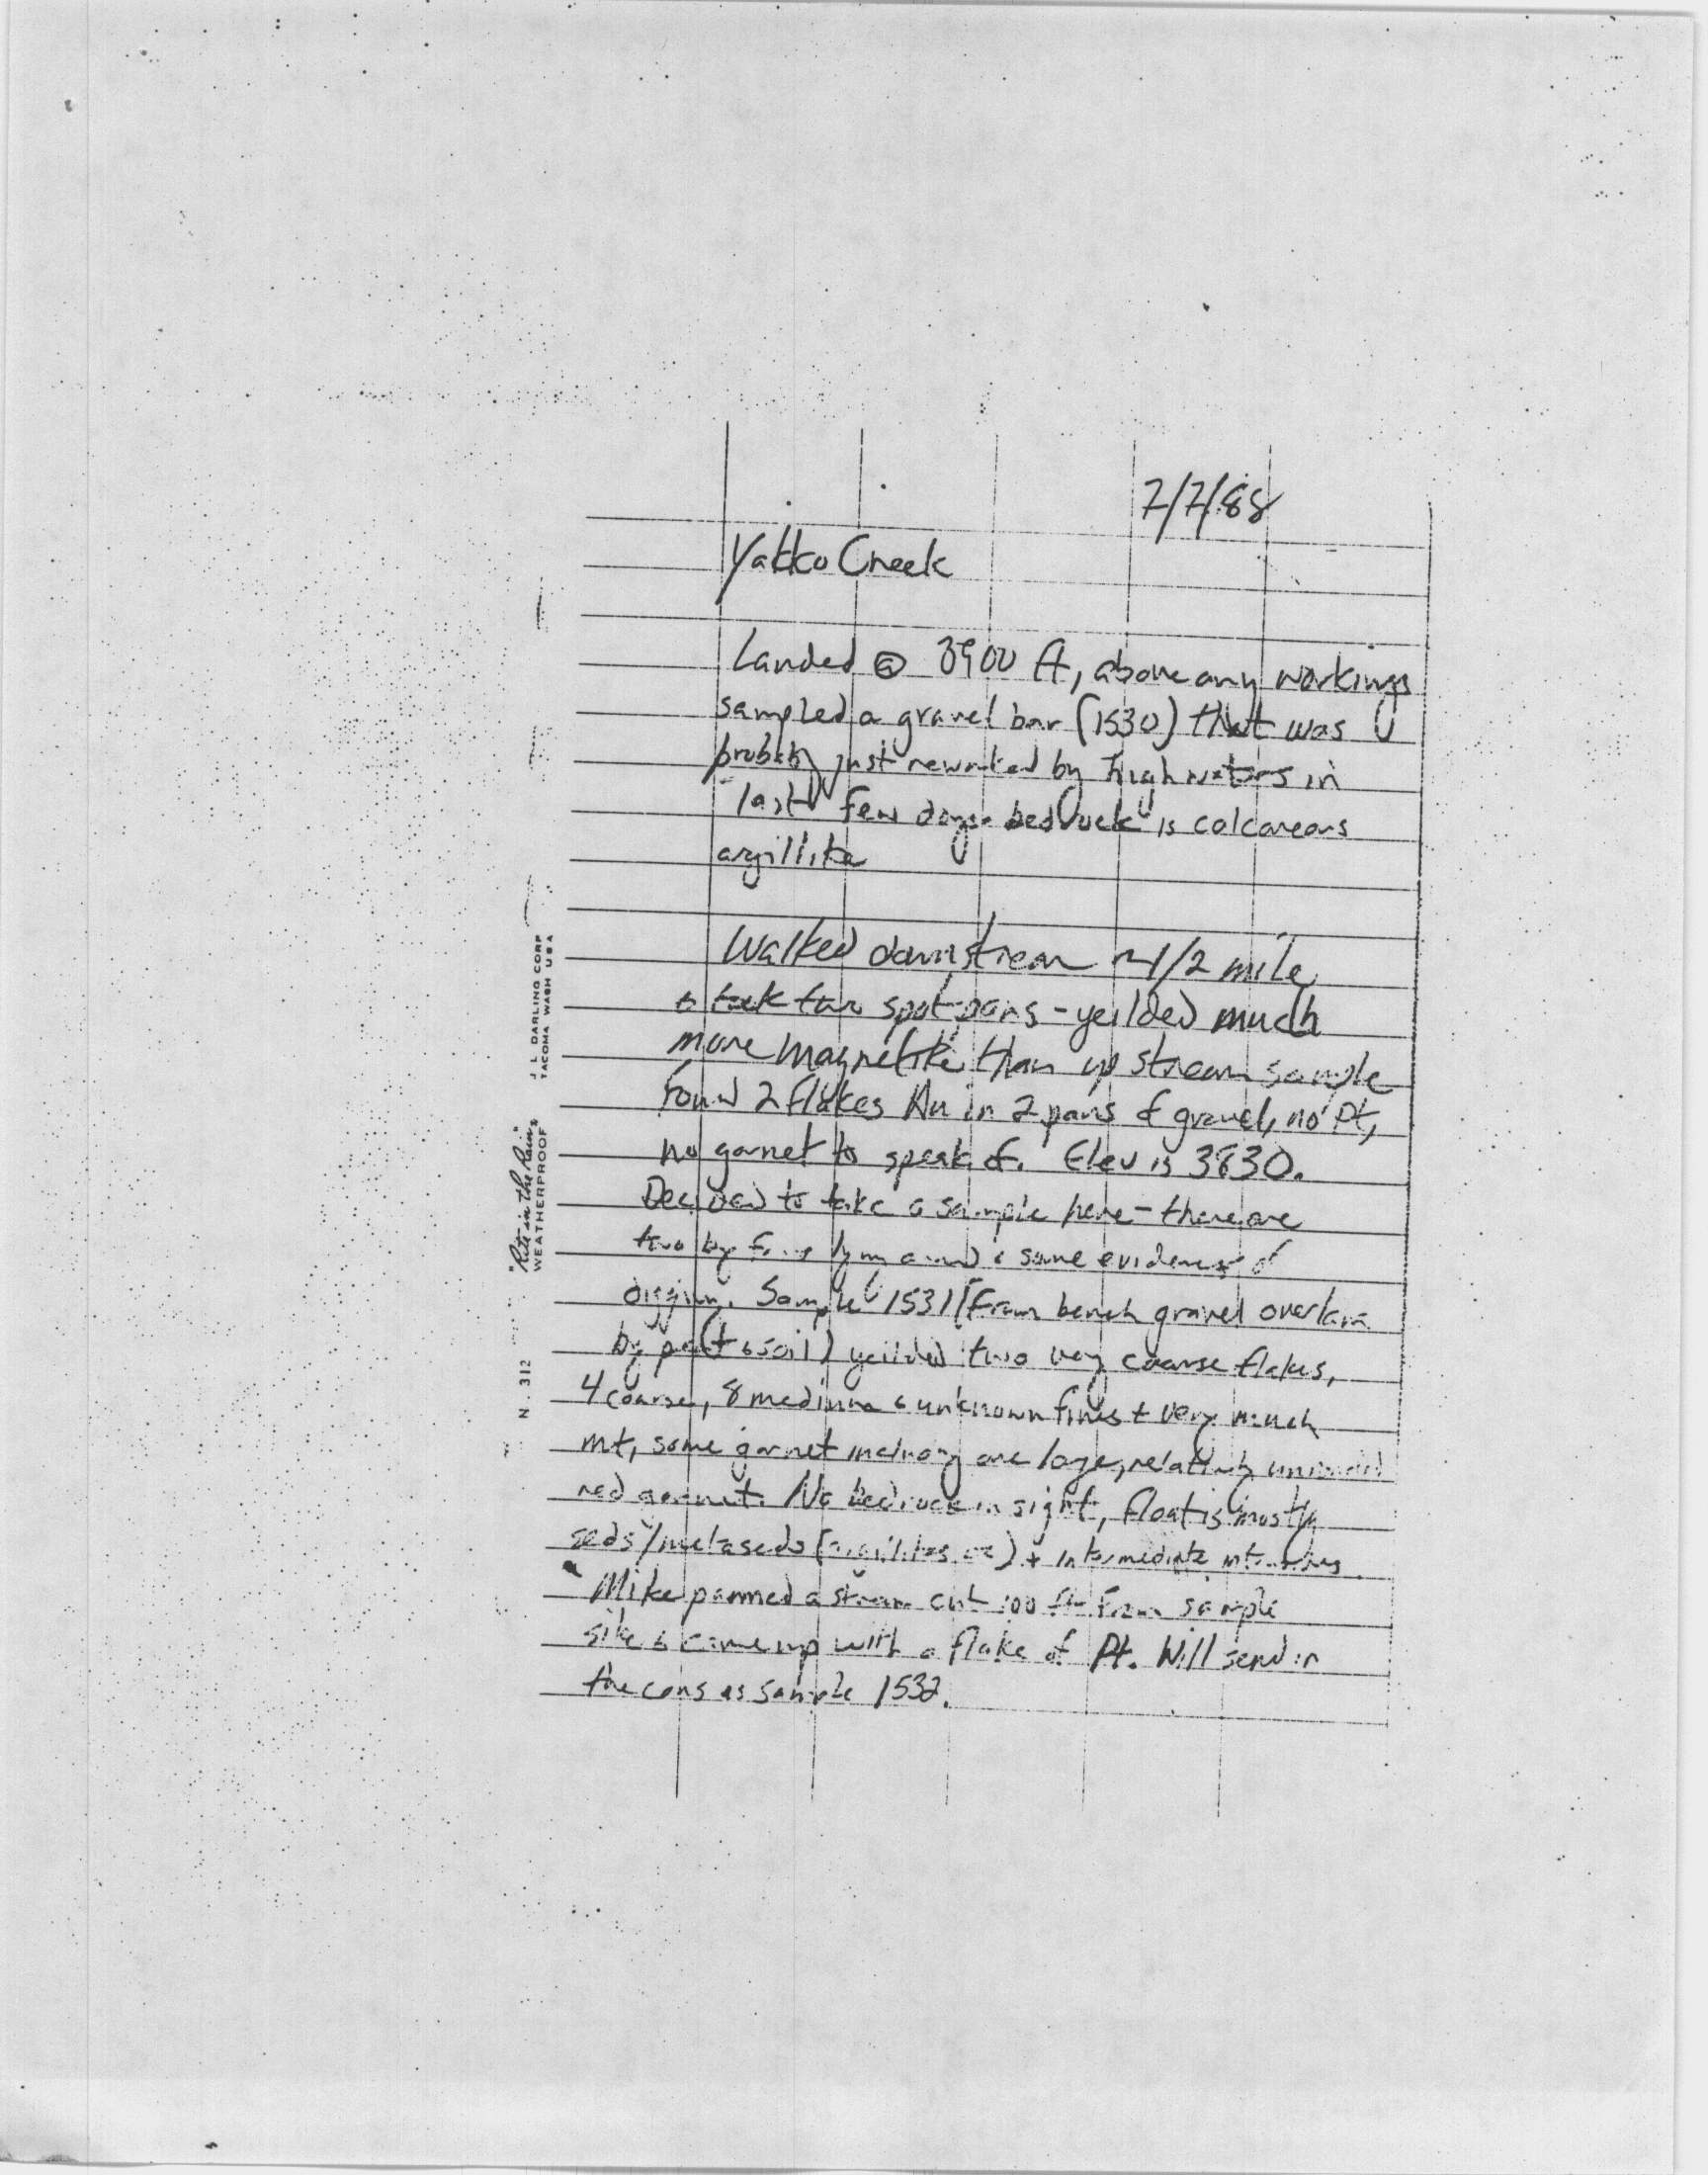 7/7/88
Yakko Creek
Landed @ 3900 ft, above any workings
sampled a gravel bar (1530) that was
probably just reworked by high waters in
last few days. bedrock is calcareous
argillite
Walked downstream ~1/2 mile
& took two spot pans - yeilded much
more magnetite than up stream sample
Found 2 flakes Au in 2 pans of gravel, no Pt,
no garnet to speak of. Elev is 3830.
Decided to take a sample here - there are
two by fours lying around & some evidence of
digging. Sample 1531 (From bench gravel overlain
by peat & soil) yeilded two very coarse flakes,
4 coarse, 8 medium & unknown fines + very much
mt, some garnet many are large, relatively
red garnet. No bedrock in sight, float is mostly
seds/metaseds (argillites etc) + intermediate intrusives.
Mike panned a stream cut 100 ft from sample
site & came up with a flake of Pt. Will send in
the cons as sample 1532.
J L DARLING CORP
TACOMA WASH USA
"Rite in the Rain"
WEATHERPROOF
N. 312